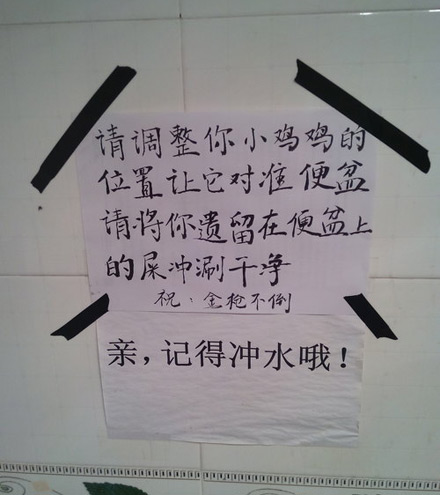 请调整你小鸡鸡的
位置让它对准便盆
请将你遗留在便盆上
的屎冲涮干净
祝：金枪不倒
亲，记得冲水哦！